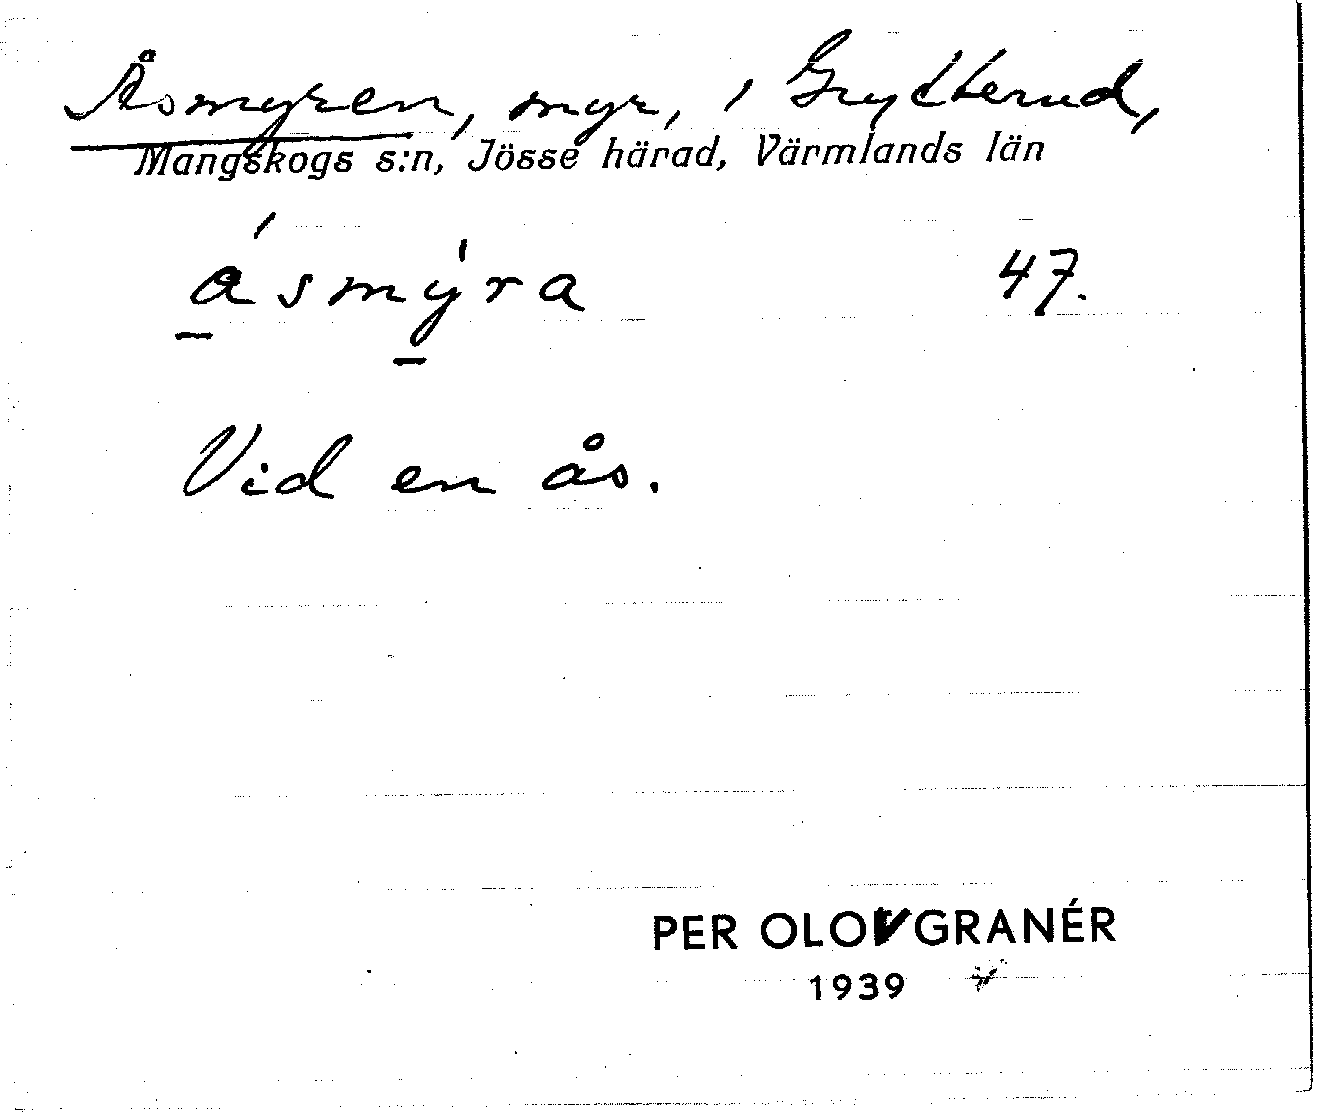 Åsmyren, myr, i Grytterud,
Mangskogs s:n, Jösse härad, Värmlands län
á̱smý̱ra 47.
Vid en ås.
PER OLOV GRANÉR
1939